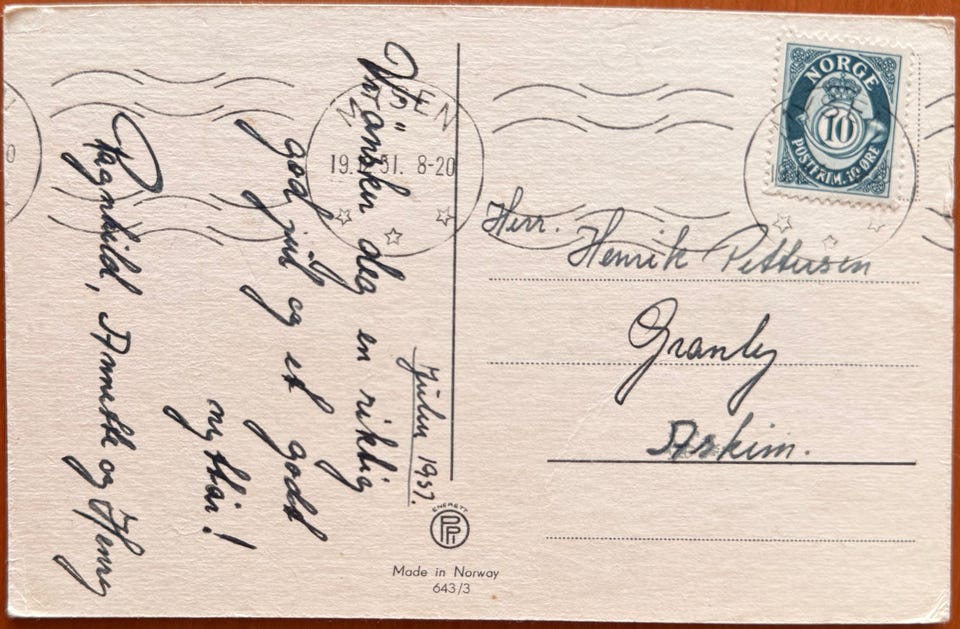 Julen 1951.
Vi önsker deg en riktig
god jul og et godt
nyttår!
Ragnhild, Annette og Henry
51. 8-20
NORGE
10
POSTFRIM. 10 ØRE
Herr. Henrik Pettersen
Granly
Askim.
ENERETT
Made in Norway
643/3